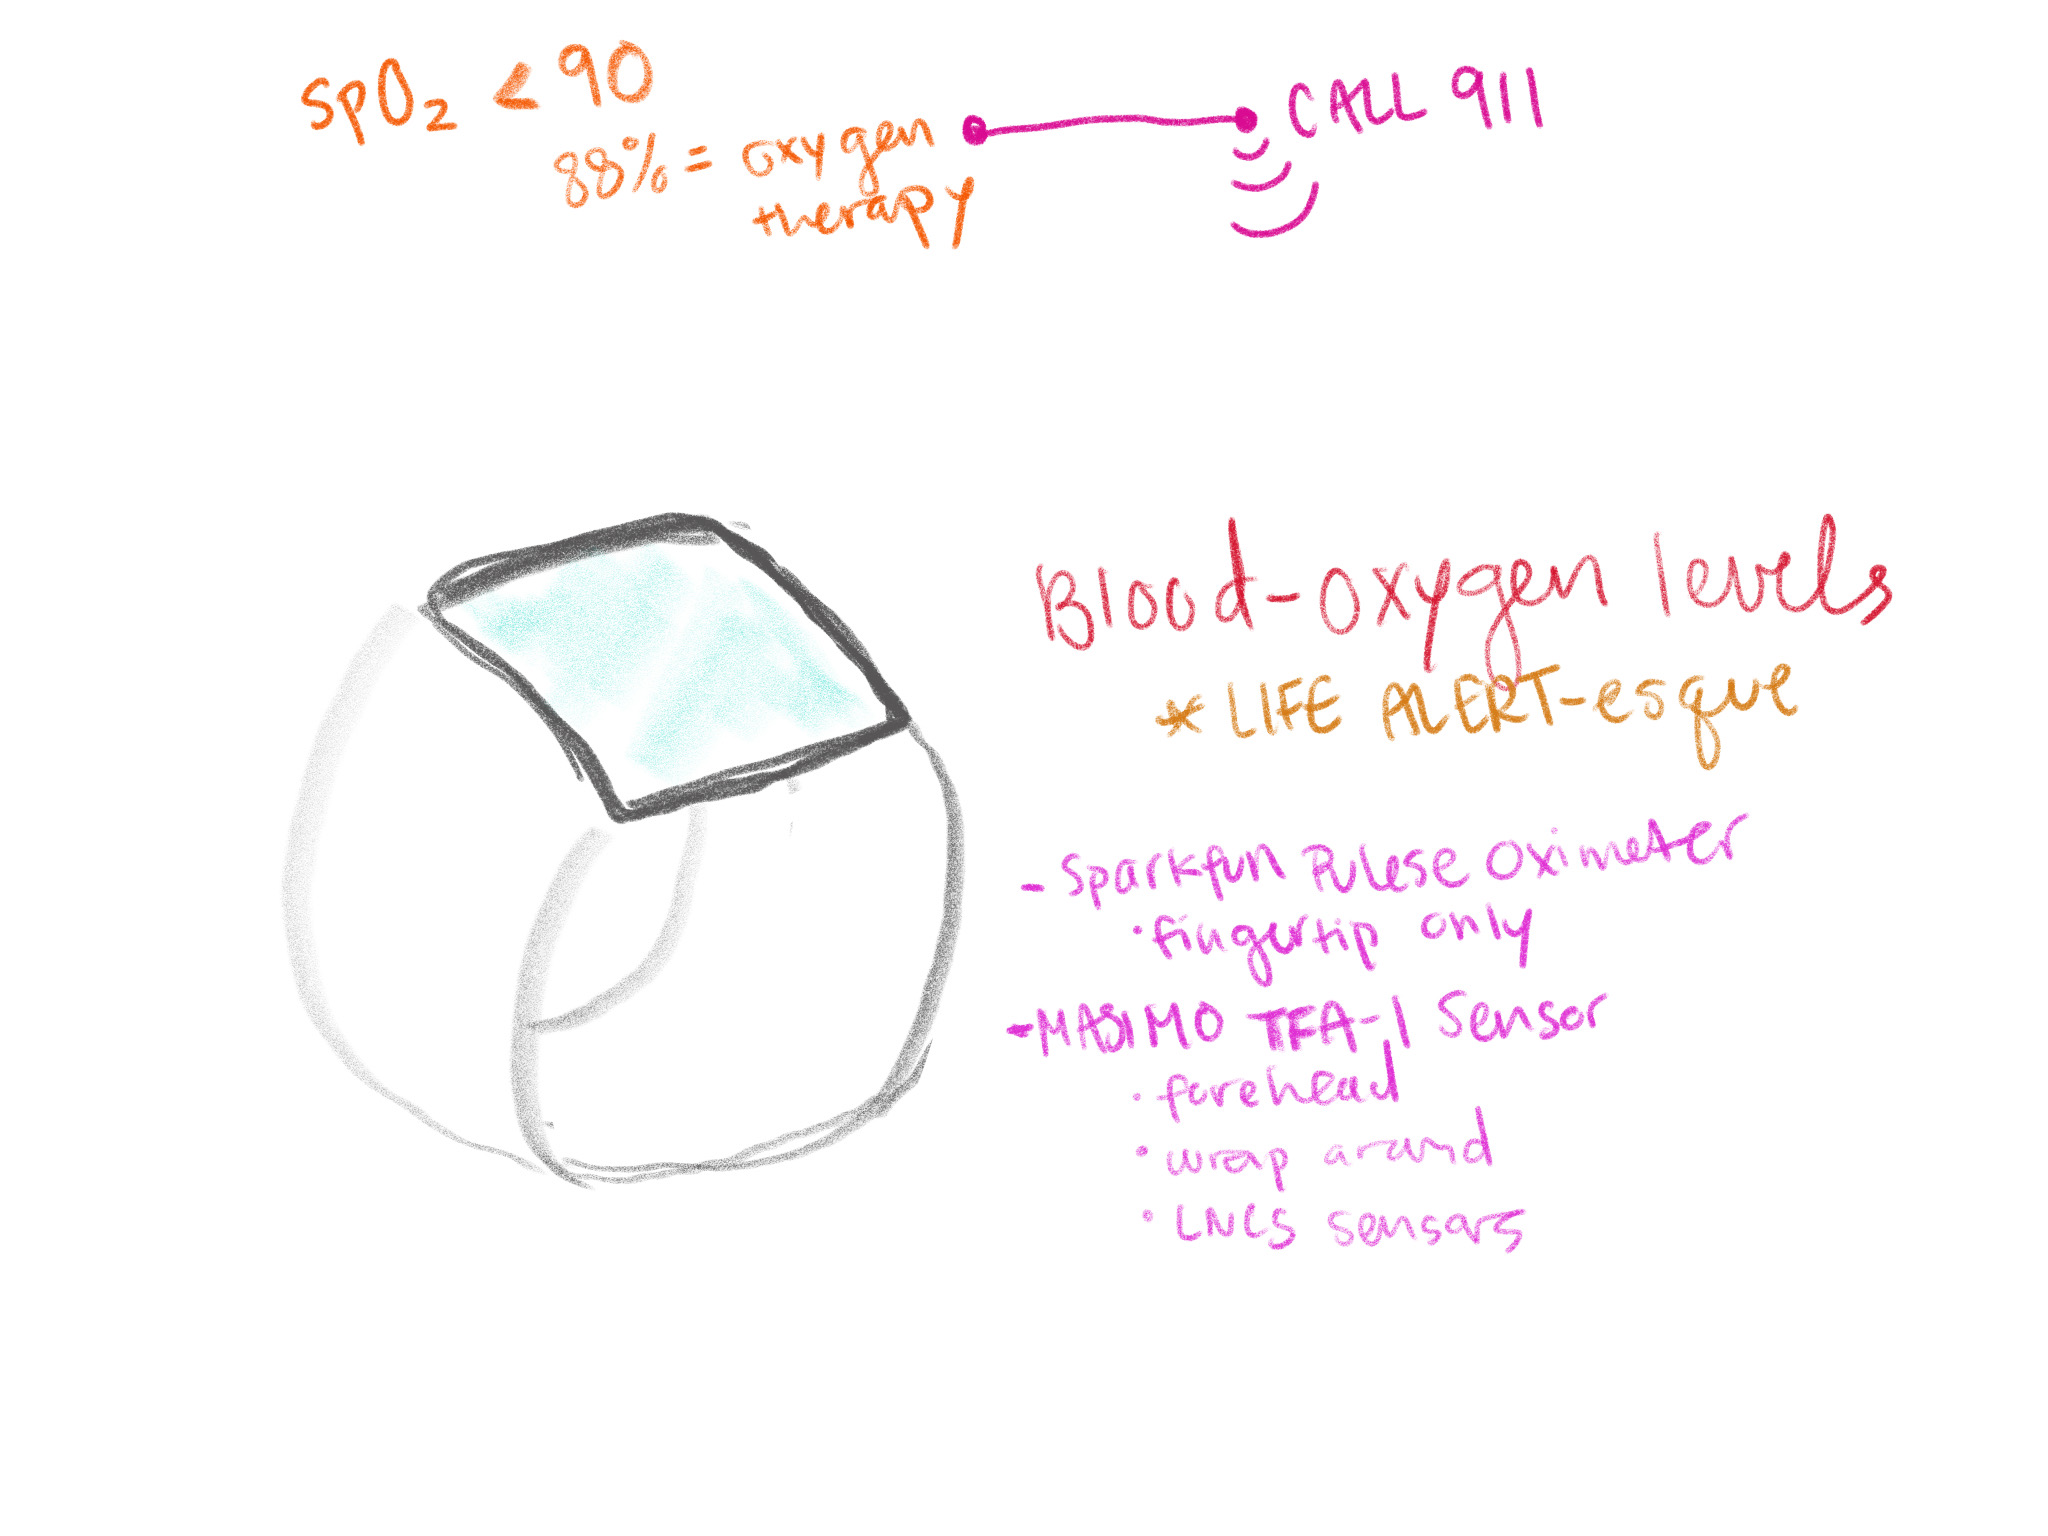 SpO₂ < 90
88% = oxygen
therapy
CALL 911
Blood-oxygen levels
* LIFE ALERT-esque
- Sparkfun Pulese Oximeter
• fingertip only
- MASIMO TFA-1 Sensor
• forehead
• wrap around
• LNCS sensors